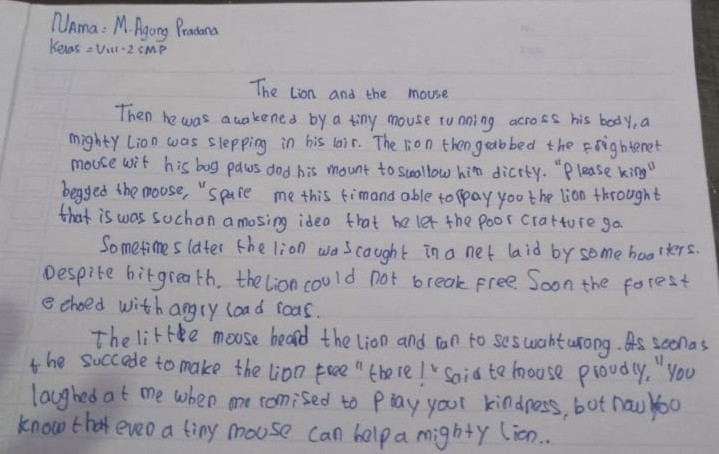 NAma : M. Agung Pradana
Kelas = VIII-2 SMP
The Lion and the mouse
Then he was awakened by a tiny mouse running across his body, a
mighty Lion was slepping in his lair. The lion then grabbed the frightenet
mouse wit his bug paws and his mount to swallow him dicrty. "Please king"
begged the mouse, "spare me this timand able to rpay you the lion throught
that is was suchan amosing ideo that he let the poor cratture go
Sometimes later the lion was caught in a net laid by some huarkers.
Despite hitgreath, the Lion could not break free Soon the forest
echoed with angry load roar.
The little mouse heard the Lion and ran to ses waht wrong. As soon as
the succede to make the lion free "there!" said te mouse proudly, "you
laughed at me when me romised to pray your kindness, but now you
know that even a tiny mouse can help a mighty Lion..